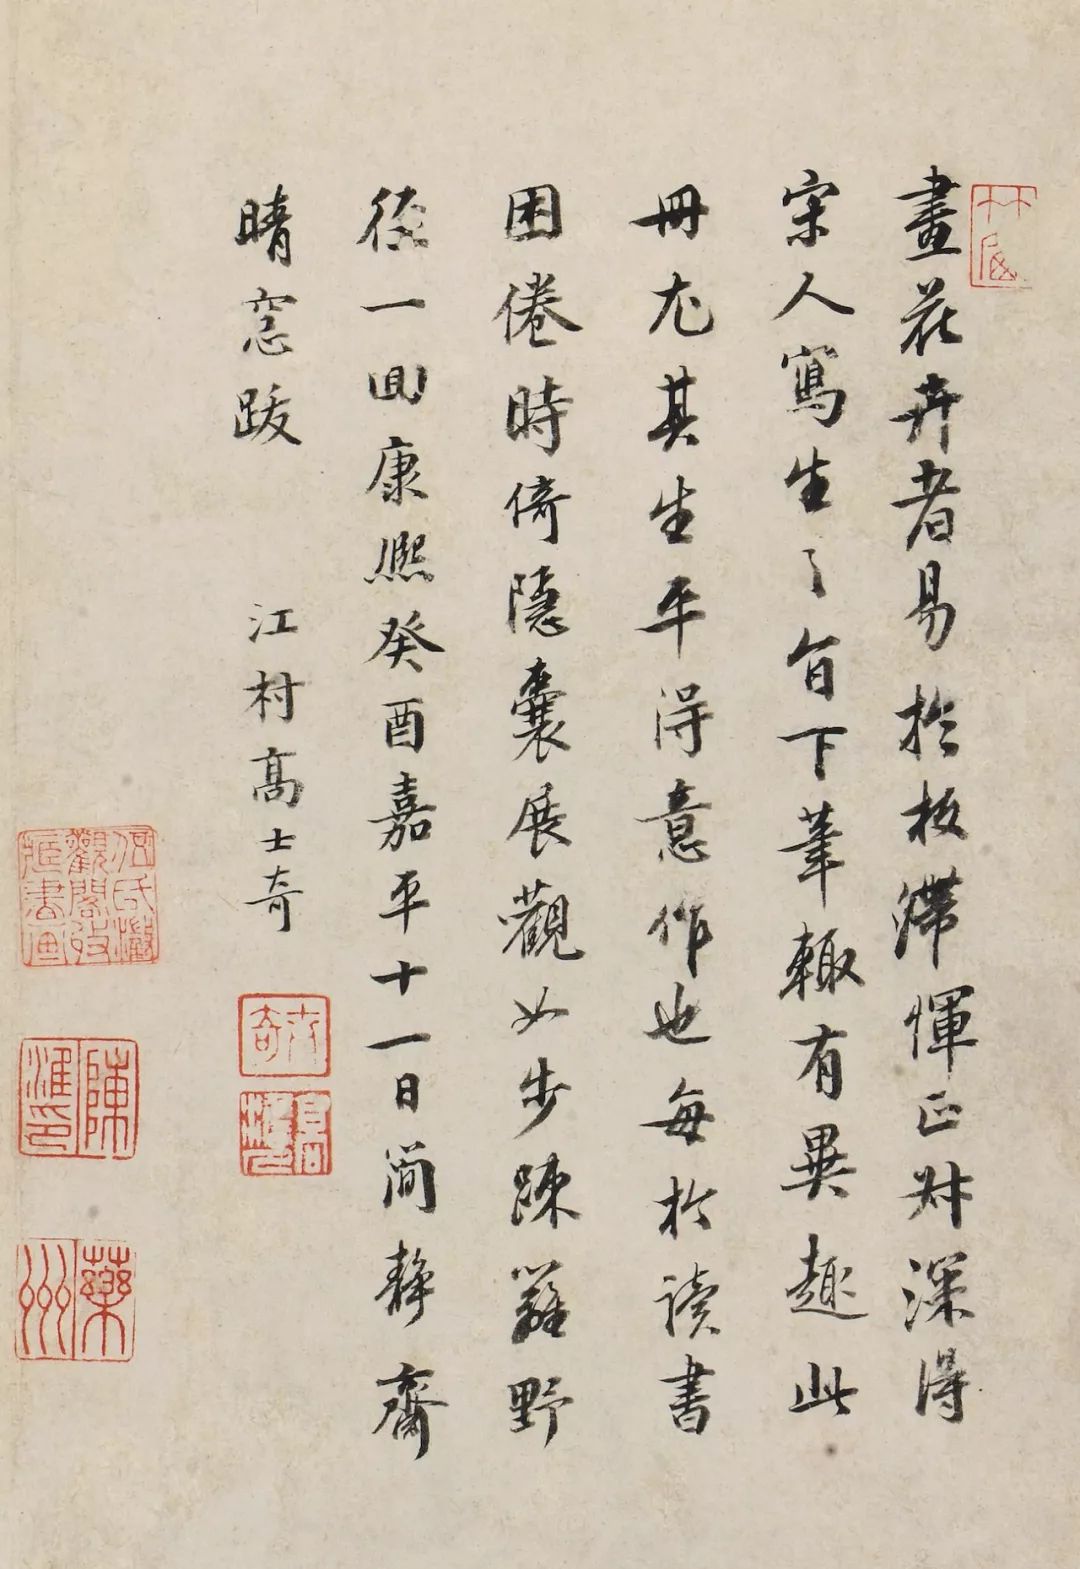 畫花卉者易於板滯惲正叔深得
宋人寫生之旨下筆輒有異趣此
冊尤其生平得意作也每於讀書
困倦時倚隱囊展觀如步疎籬野
徑一回康熙癸酉嘉平十一日簡靜齋
晴窓跋
江村高士奇
竹窗
士奇
陳淮印
藥洲